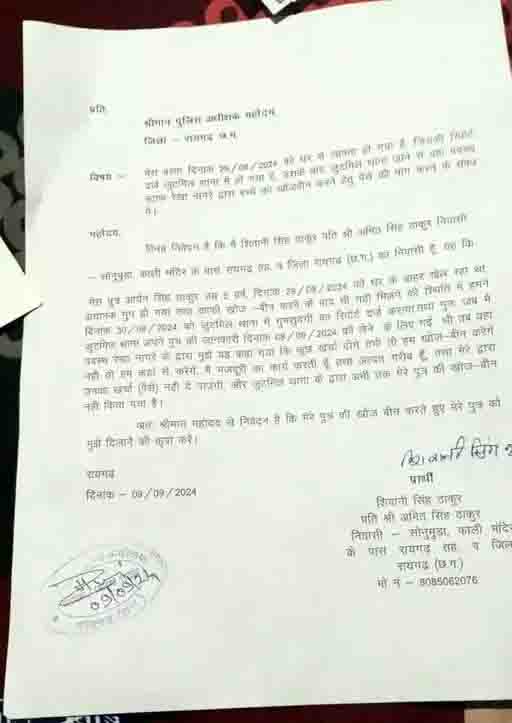 प्रति,
श्रीमान पुलिस अधीक्षक महोदय,
जिला – रायगढ़ छ.ग.
विषय :- मेरा बच्चा दिनांक 29/08/2024 को घर से लापता हो गया है, जिसकी रिपोर्ट
दर्ज जुटमिल थाना में हो गया है, उसके बाद जुटमिल थाना जाने से वहां पदस्थ
स्टाफ रेखा नागरे द्वारा बच्चे को खोजबीन करने हेतु पैसे की मांग करने के संबंध
में।
महोदय,
विनम्र निवेदन है कि मैं शिवानी सिंह ठाकुर पति श्री अमित सिंह ठाकुर निवासी
– सोनुमुडा, काली मंदिर के पास रायगढ़ तह. व जिला रायगढ़ (छ.ग.) का निवासी हूँ, यह कि
मेरा पुत्र आर्यन सिंह ठाकुर उम्र 5 वर्ष, दिनांक 29/08/2024 को घर के बाहर खेल रहा था,
अचानक गुम हो गया तथा काफी खोज –बीन करने के बाद भी नहीं मिलने की स्थिति में हमने
दिनांक 30/08/2024 को जुटमिल थाना में गुमशुदगी का रिपोर्ट दर्ज कराया गया पुनः जब मैं
जुटमिल थाना अपने पुत्र की जानकारी दिनांक 08/09/2024 को लेने के लिए गई थी तब वहां
पदस्थ रेखा नागरे के द्वारा मुझे यह कहा गया कि कुछ खर्चा दोगे तभी तो हम खोज–बीन करेंगे
नहीं तो हम कहां से करेंगे, मैं मजदूरी का कार्य करती हूँ तथा अत्यंत गरीब हूँ, तथा मेरे द्वारा
उनका खर्चा (पैसे) नहीं दे पाउंगी, और जुटमिल थाना के द्वारा अभी तक मेरे पुत्र की खोज–बीन
नहीं किया गया है।
अतः श्रीमान महोदय से निवेदन है कि मेरे पुत्र की खोज बीन करते हुए मेरे पुत्र को
मुझे दिलाने की कृपा करें।
रायगढ़
दिनांक – 09/09/2024
प्रार्थी
शिवानी सिंह ठाकुर
पति श्री अमित सिंह ठाकुर
निवासी – सोनुमुडा, काली मंदिर
के पास रायगढ़ तह. व जिला
रायगढ़ (छ.ग.)
मो नं – 8085062076
09/09/24